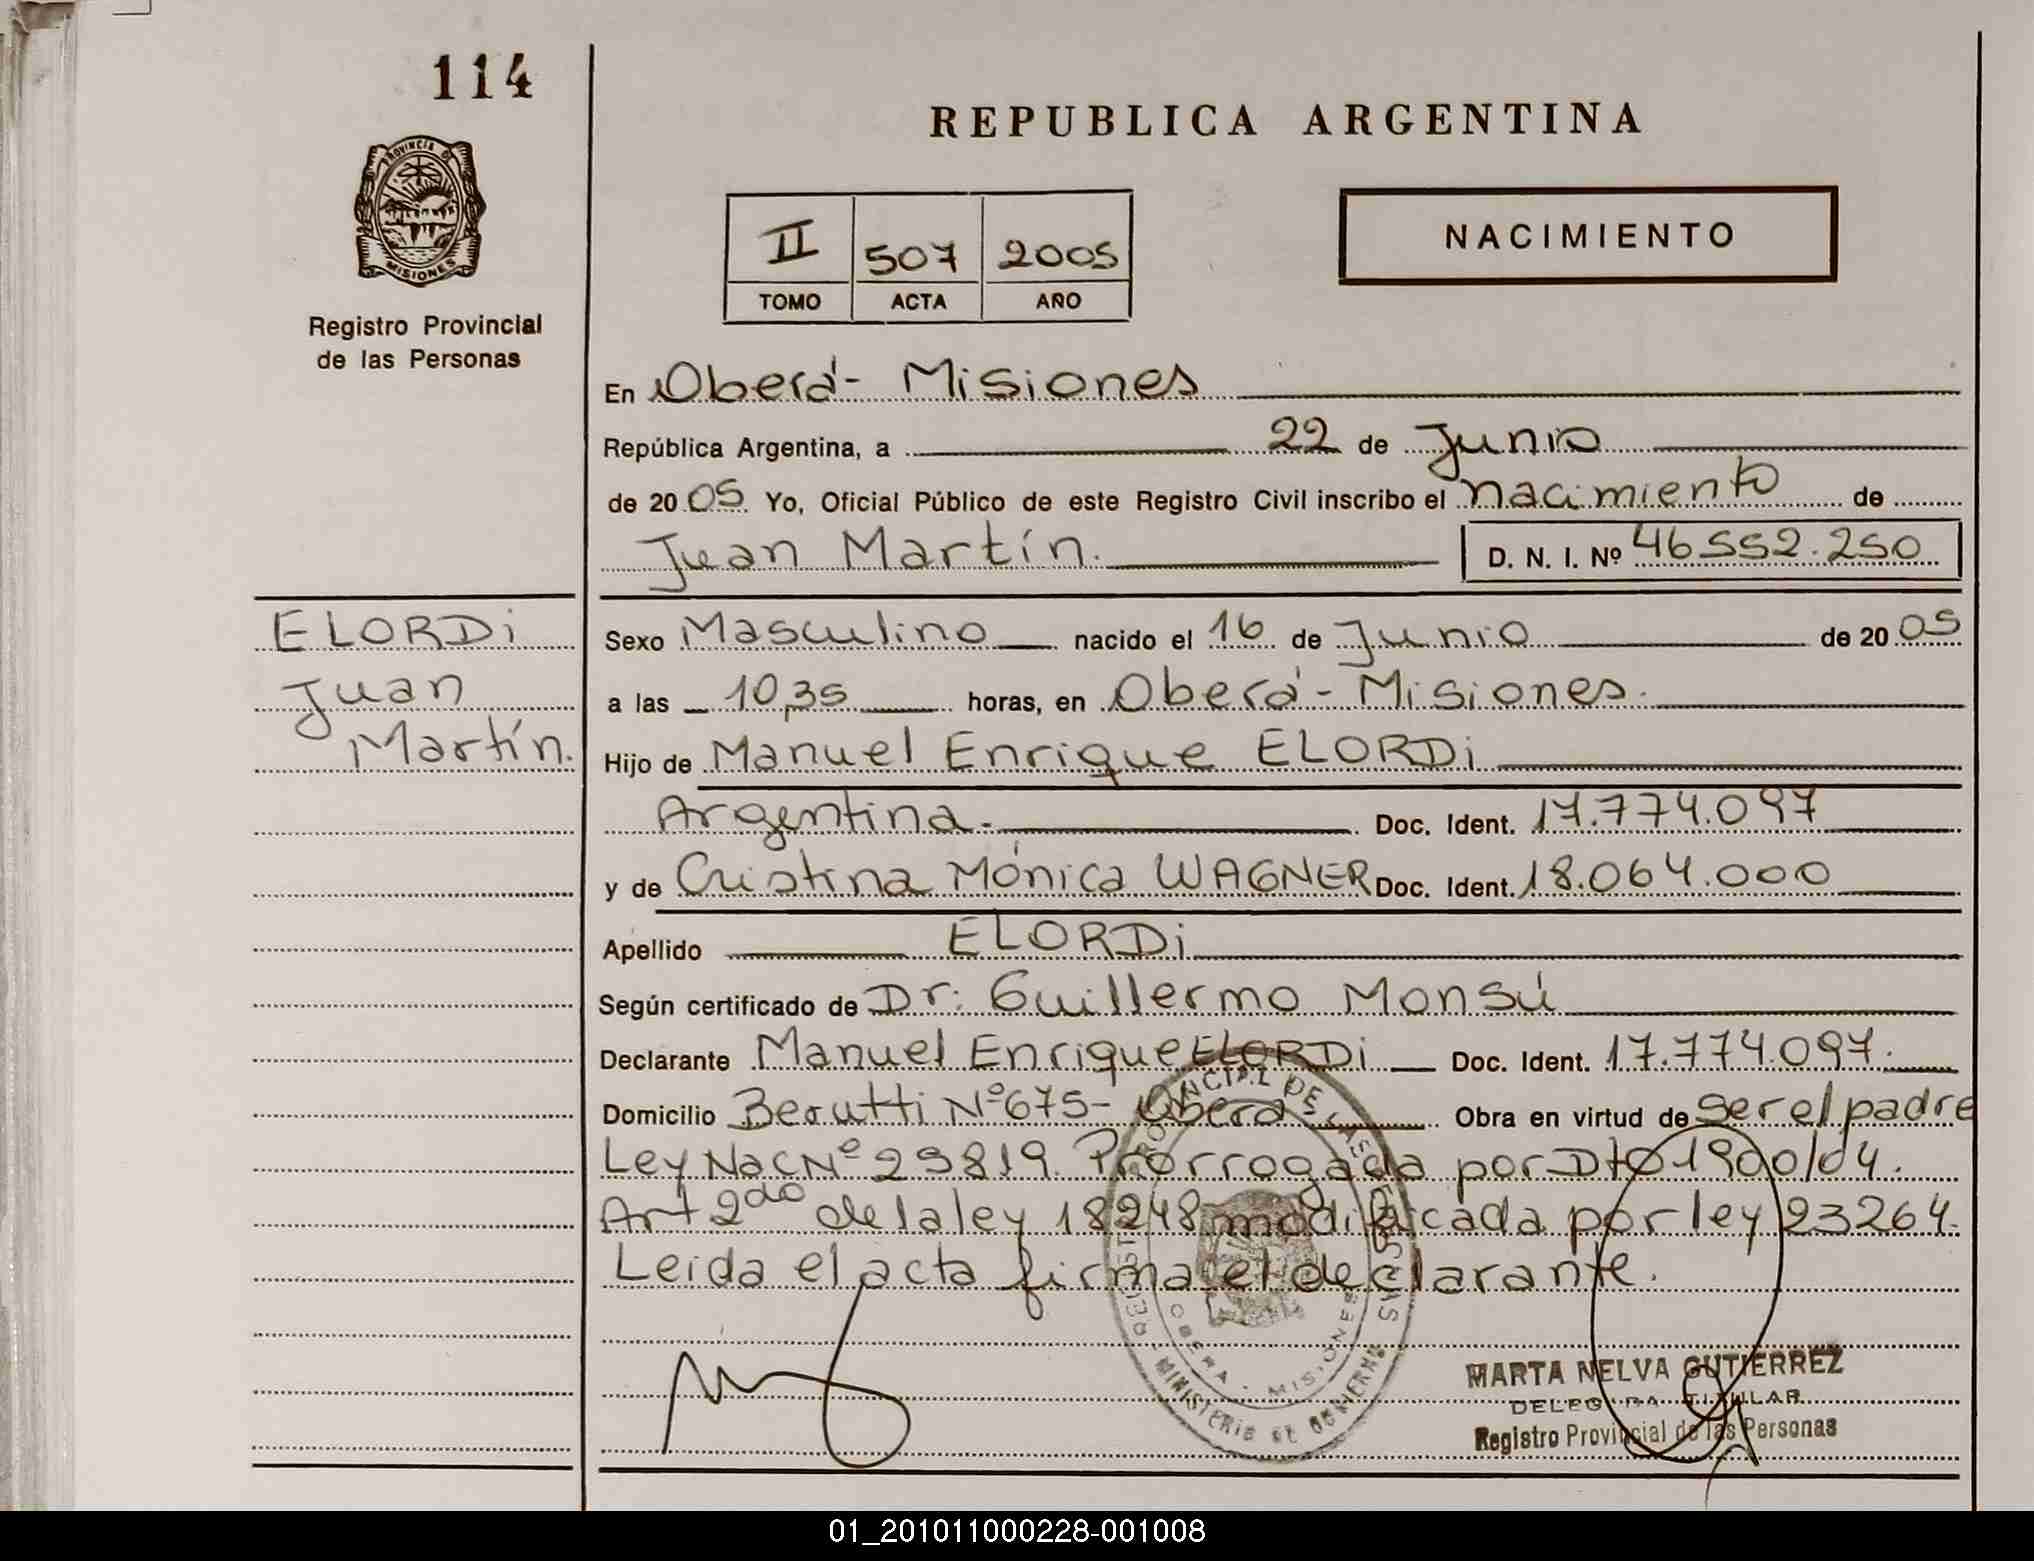 114
REPUBLICA ARGENTINA
PROVINCIA DE
MISIONES
Registro Provincial
de las Personas
II 507 2005
TOMO ACTA AÑO
NACIMIENTO
En Oberá - Misiones
República Argentina, a 22 de Junio
de 20 05 Yo, Oficial Público de este Registro Civil inscribo el nacimiento de
Juan Martín. D. N. I. Nº 46552.250
ELORDi
Juan
Martín.
Sexo Masculino nacido el 16 de Junio de 20 05
a las 10,35 horas, en Oberá - Misiones.
Hijo de Manuel Enrique ELORDi
Argentina. Doc. Ident. 17.774.097
y de Cristina Mónica WAGNER Doc. Ident. 18.064.000
Apellido ELORDi
Según certificado de Dr: Guillermo Monsú
Declarante Manuel Enrique ELORDi Doc. Ident. 17.774.097.
Domicilio Berutti Nº 675 - Oberá Obra en virtud de ser el padre
Ley Nac Nº 25819. Prorrogada por Dto 1900/04.
Art 2do de la ley 18248 modificada por ley 23264.
Leida el acta firma el declarante.
MINISTERIO DE GOBIERNO
OBERA - MISIONES
MARTA NELVA GUTIERREZ
DELEGADA TITULAR
Registro Provincial de las Personas
01_201011000228-001008